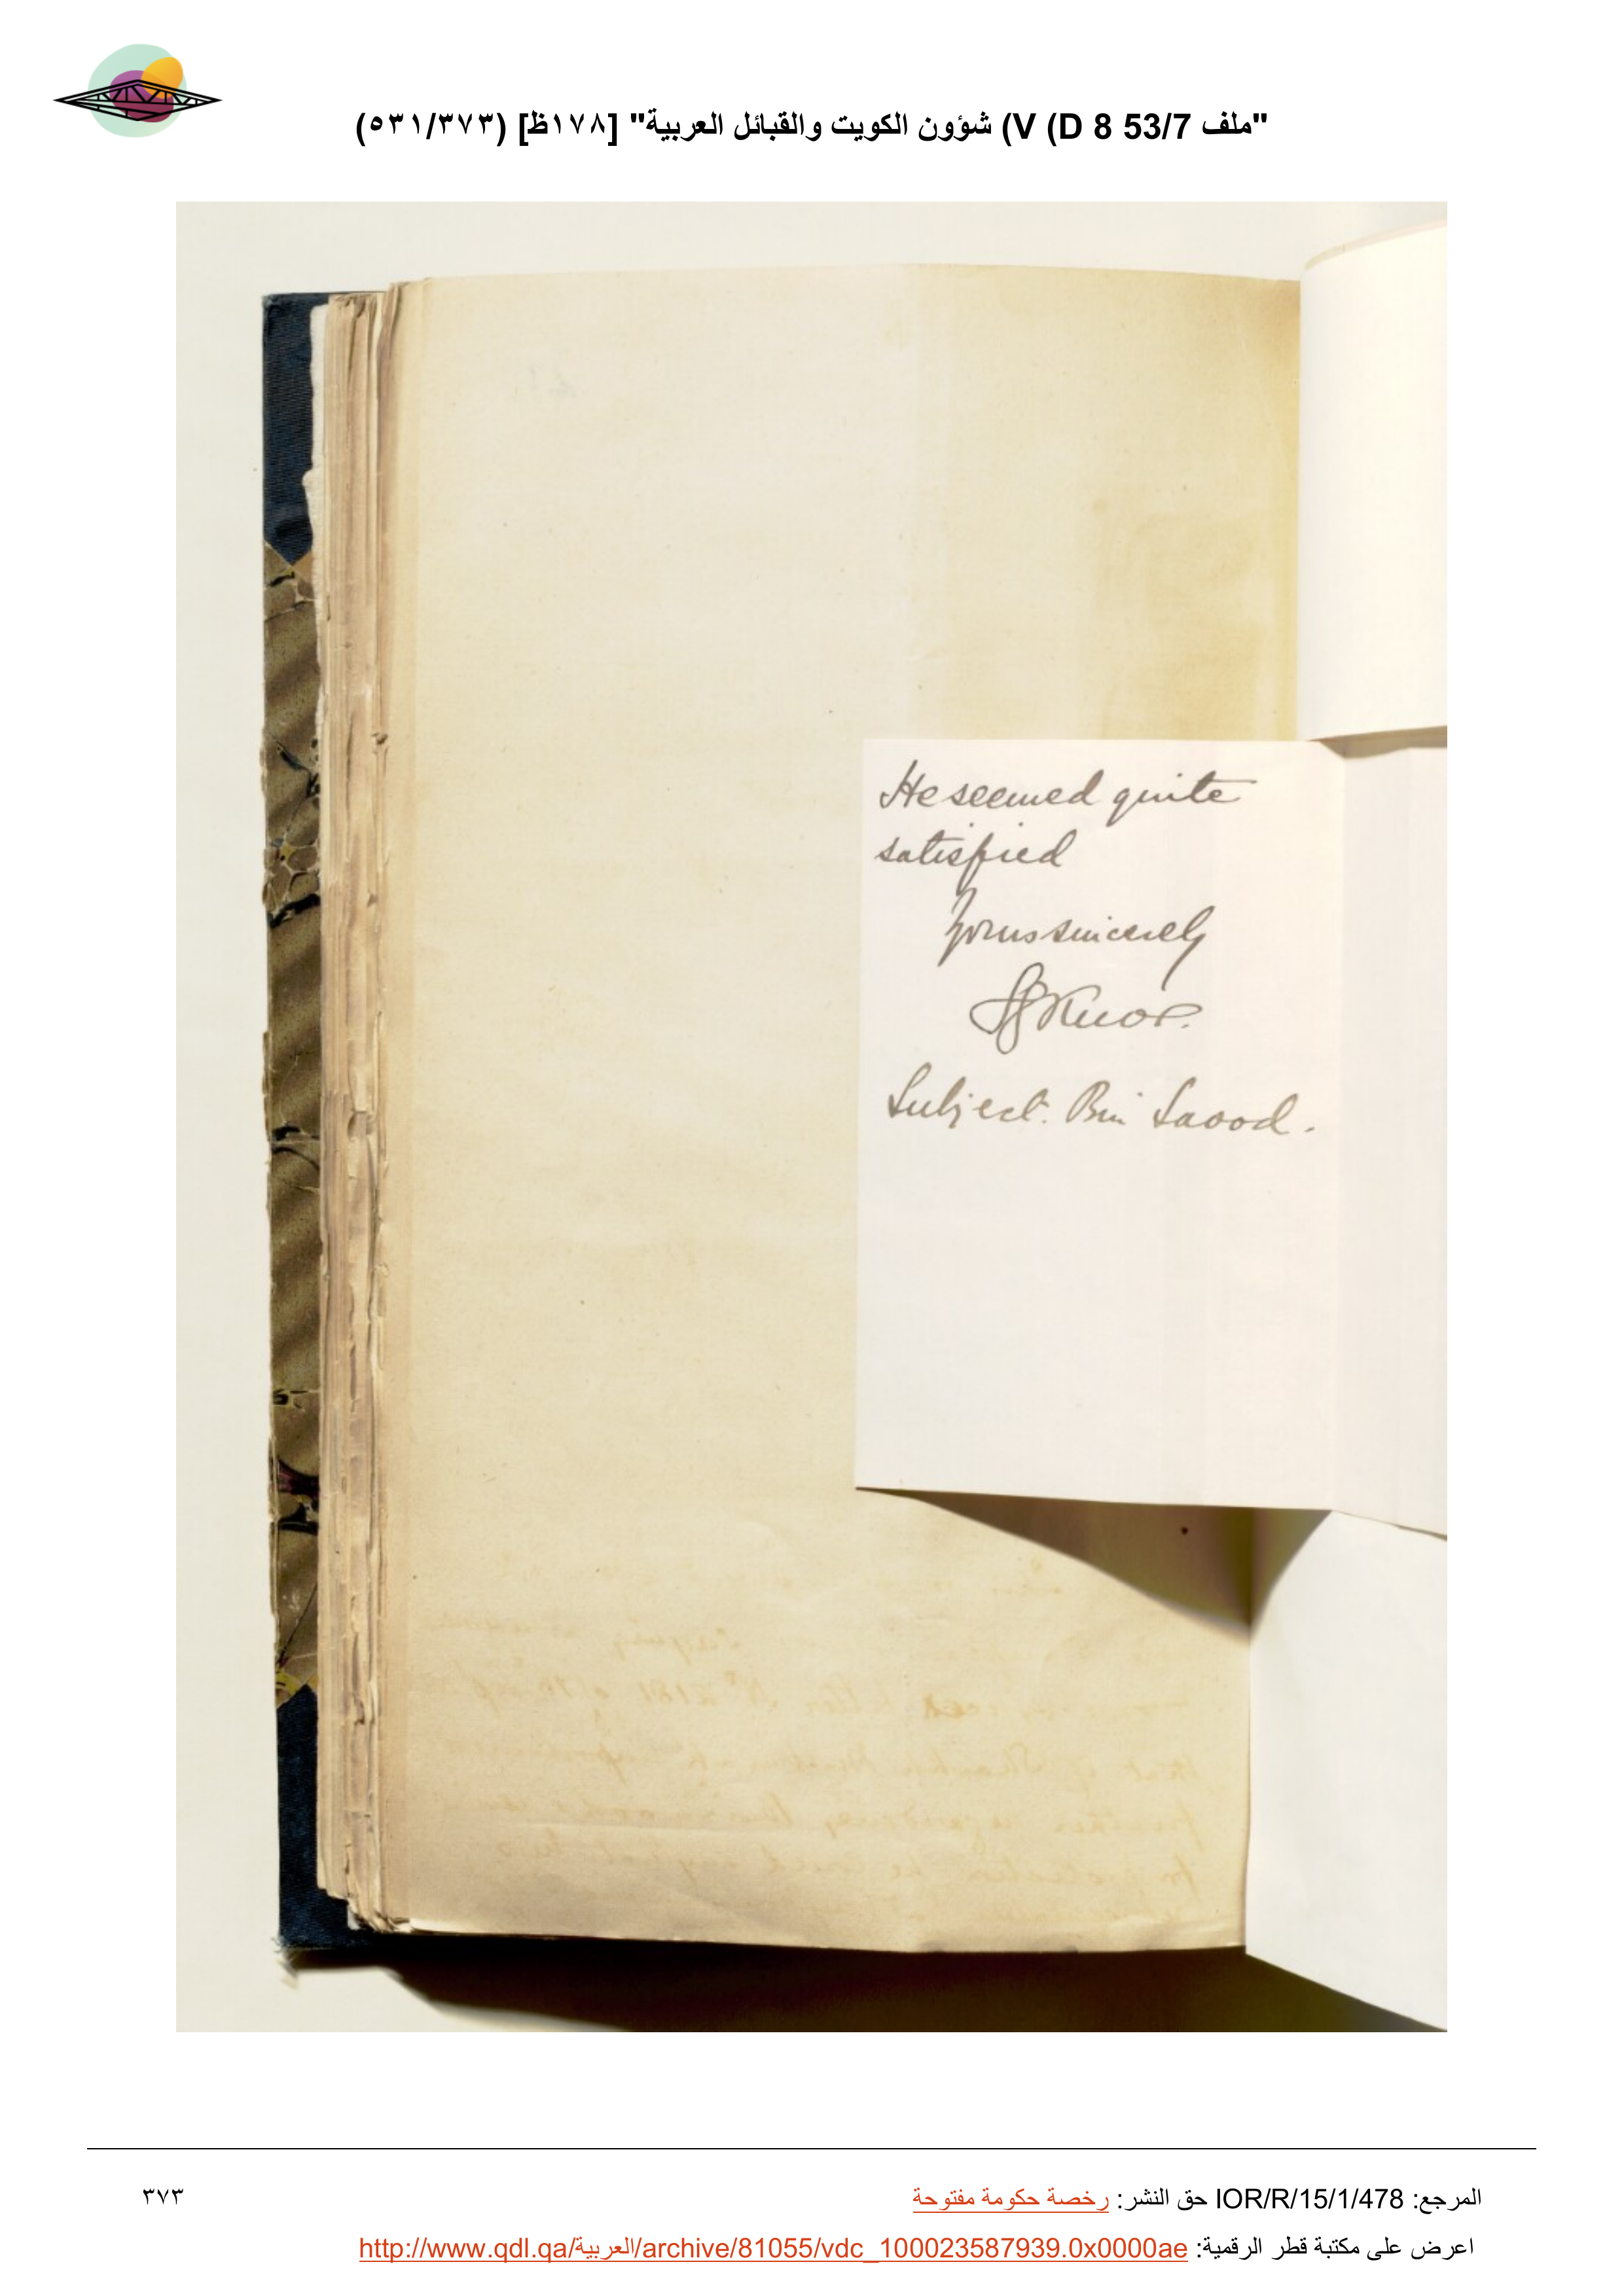 "ملف 53/7 D 8) V) شؤون الكويت والقبائل العربية" [١٧٨ظ] (٥٣١/٣٧٣)
He seemed quite
satisfied
Yours sincerely
SGKnox.
Subject. Bin Saood.
المرجع: IOR/R/15/1/478 حق النشر: رخصة حكومة مفتوحة
٣٧٣
اعرض على مكتبة قطر الرقمية: http://www.qdl.qa/العربية/archive/81055/vdc_100023587939.0x0000ae